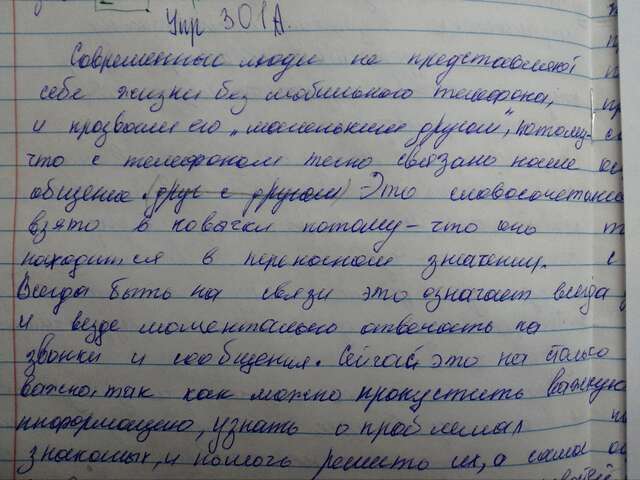 Упр 301А.
Современные люди не представляют
себе жизни без мобильного телефона,
и прозвали его „маленьким другом", потому-
что с телефоном тесно связано наше
общение (друг с другом) Это словосочетание
взято в ковычки потому-что оно
находится в переносном значении.
Всегда быть на связи это означает всегда
и везде моментально отвечать на
звонки и сообщения. Сейчас это на столько
важно, так как можно пропустить важную
информацию, узнать о проблемах
знакомых, и помочь решить их, а сама